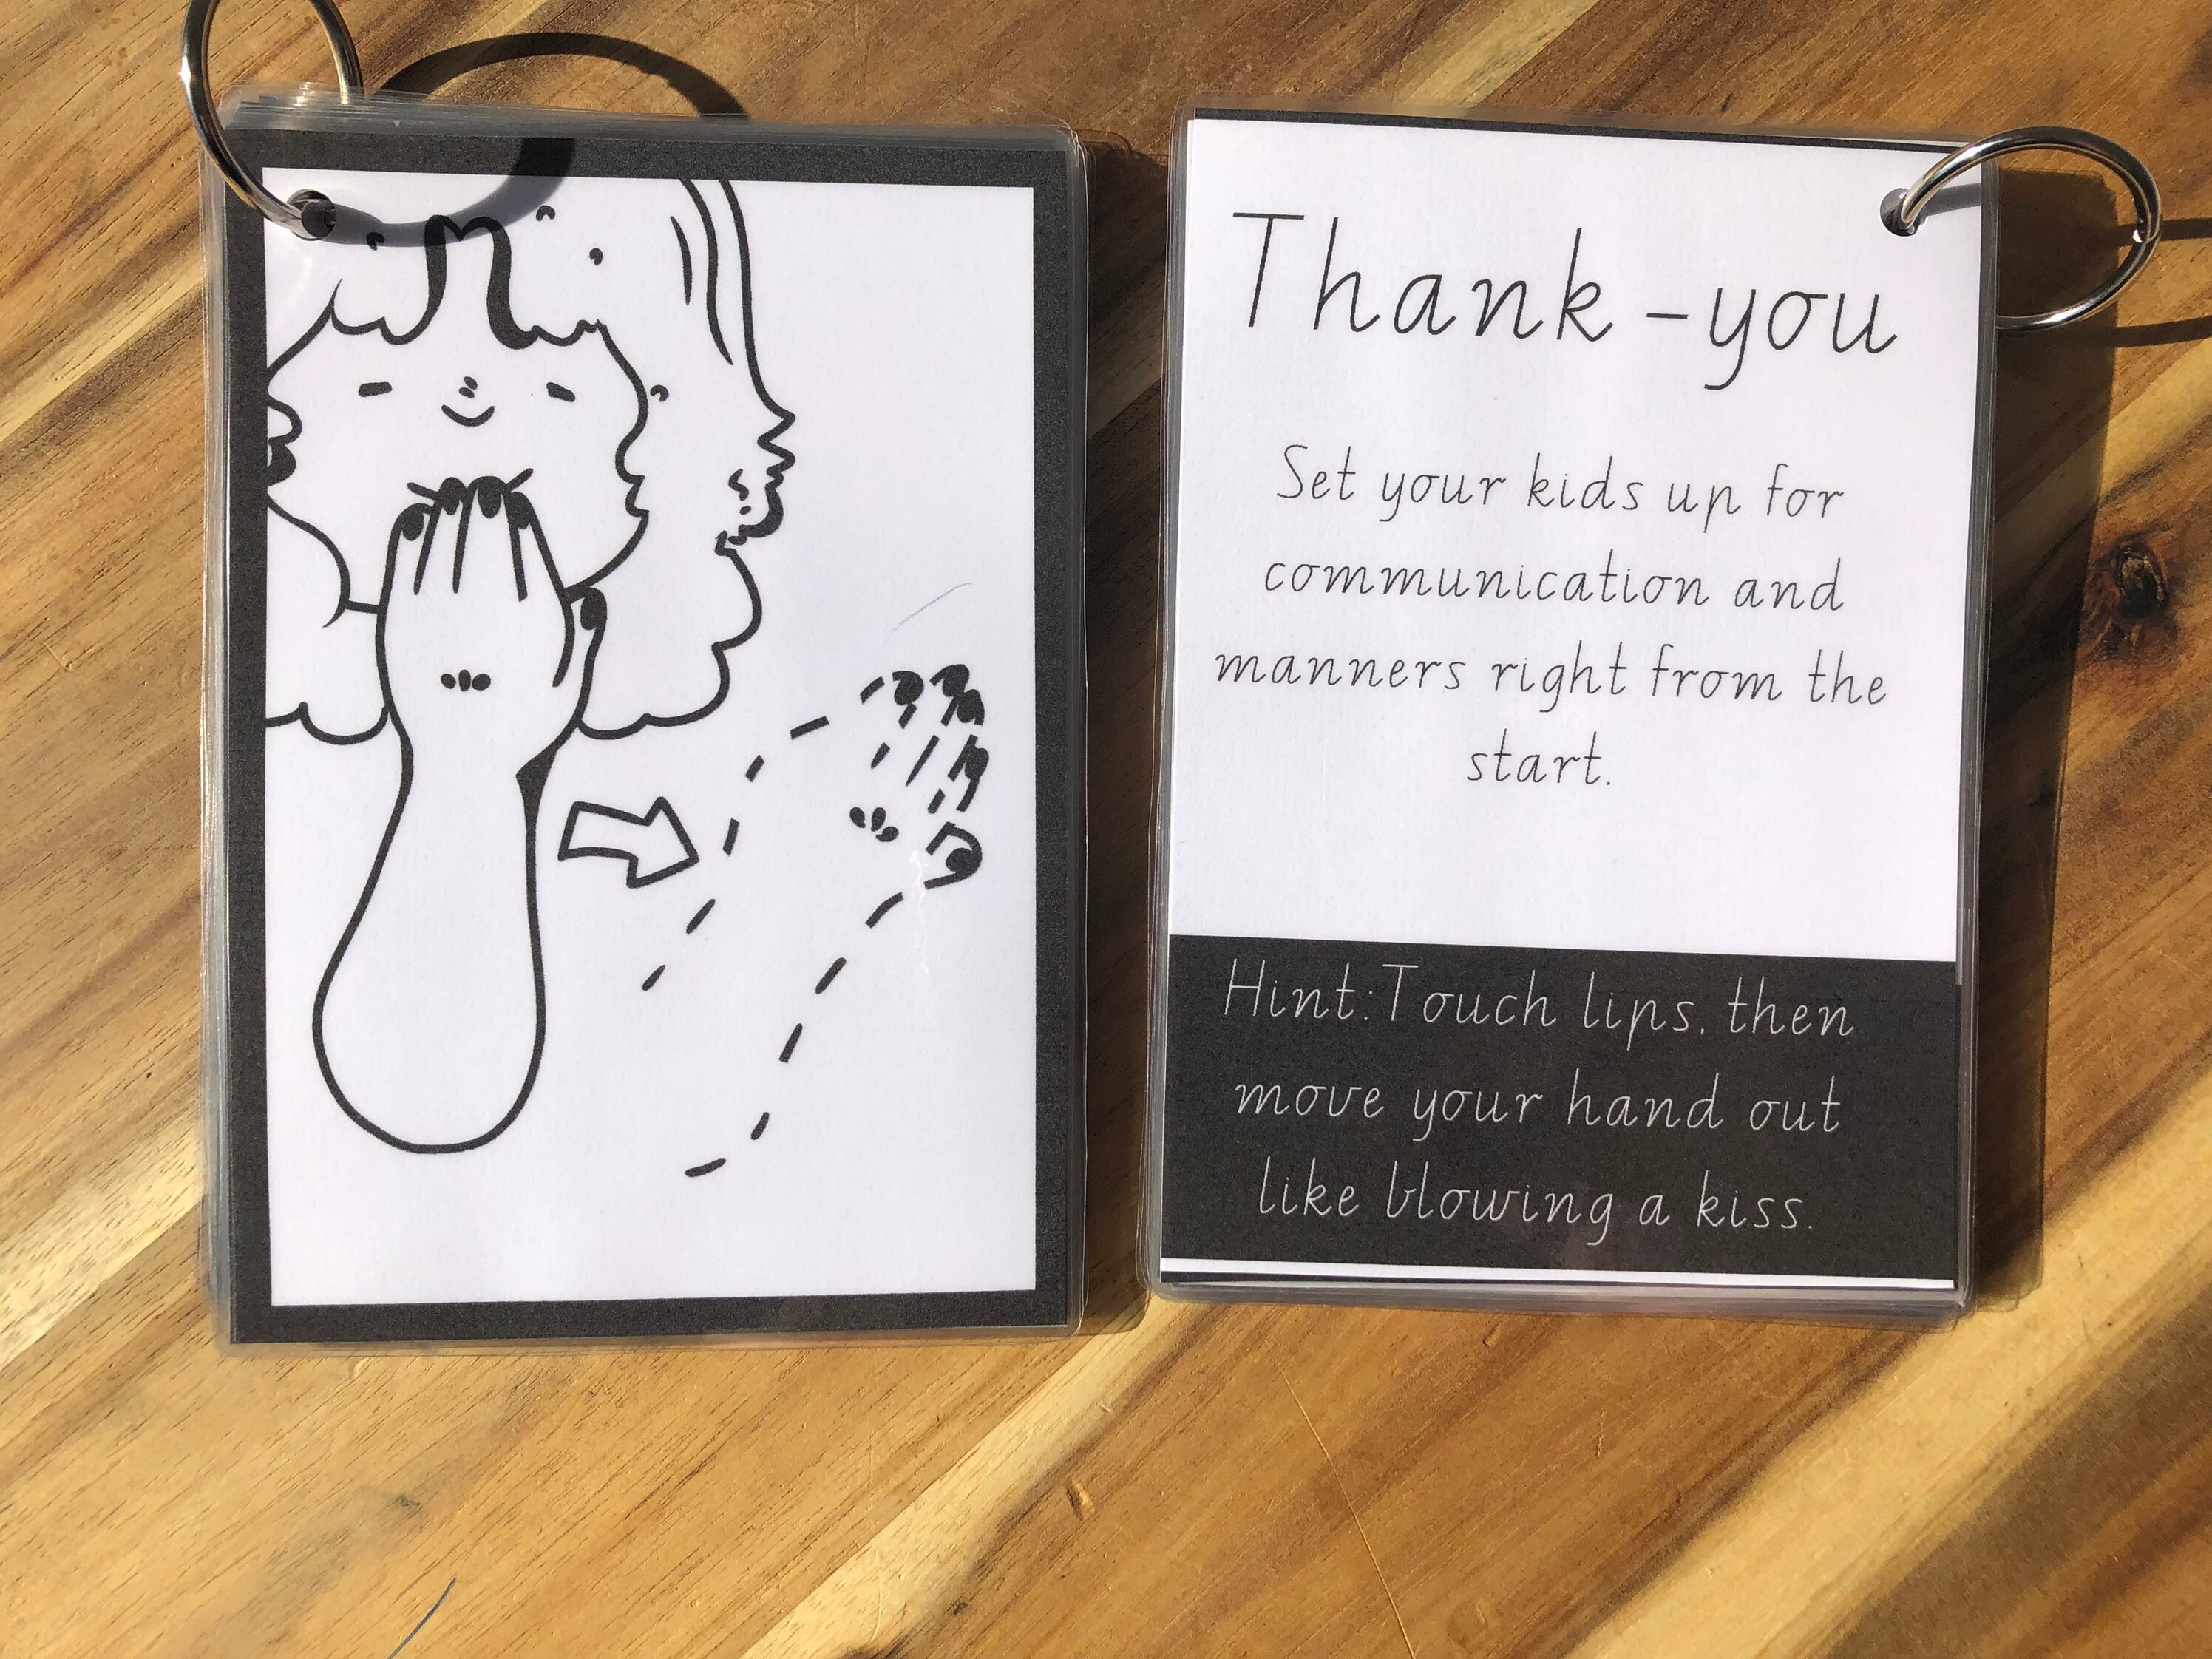 Thank-you
Set your kids up for
communication and
manners right from the
start.
Hint:Touch lips, then
move your hand out
like blowing a kiss.